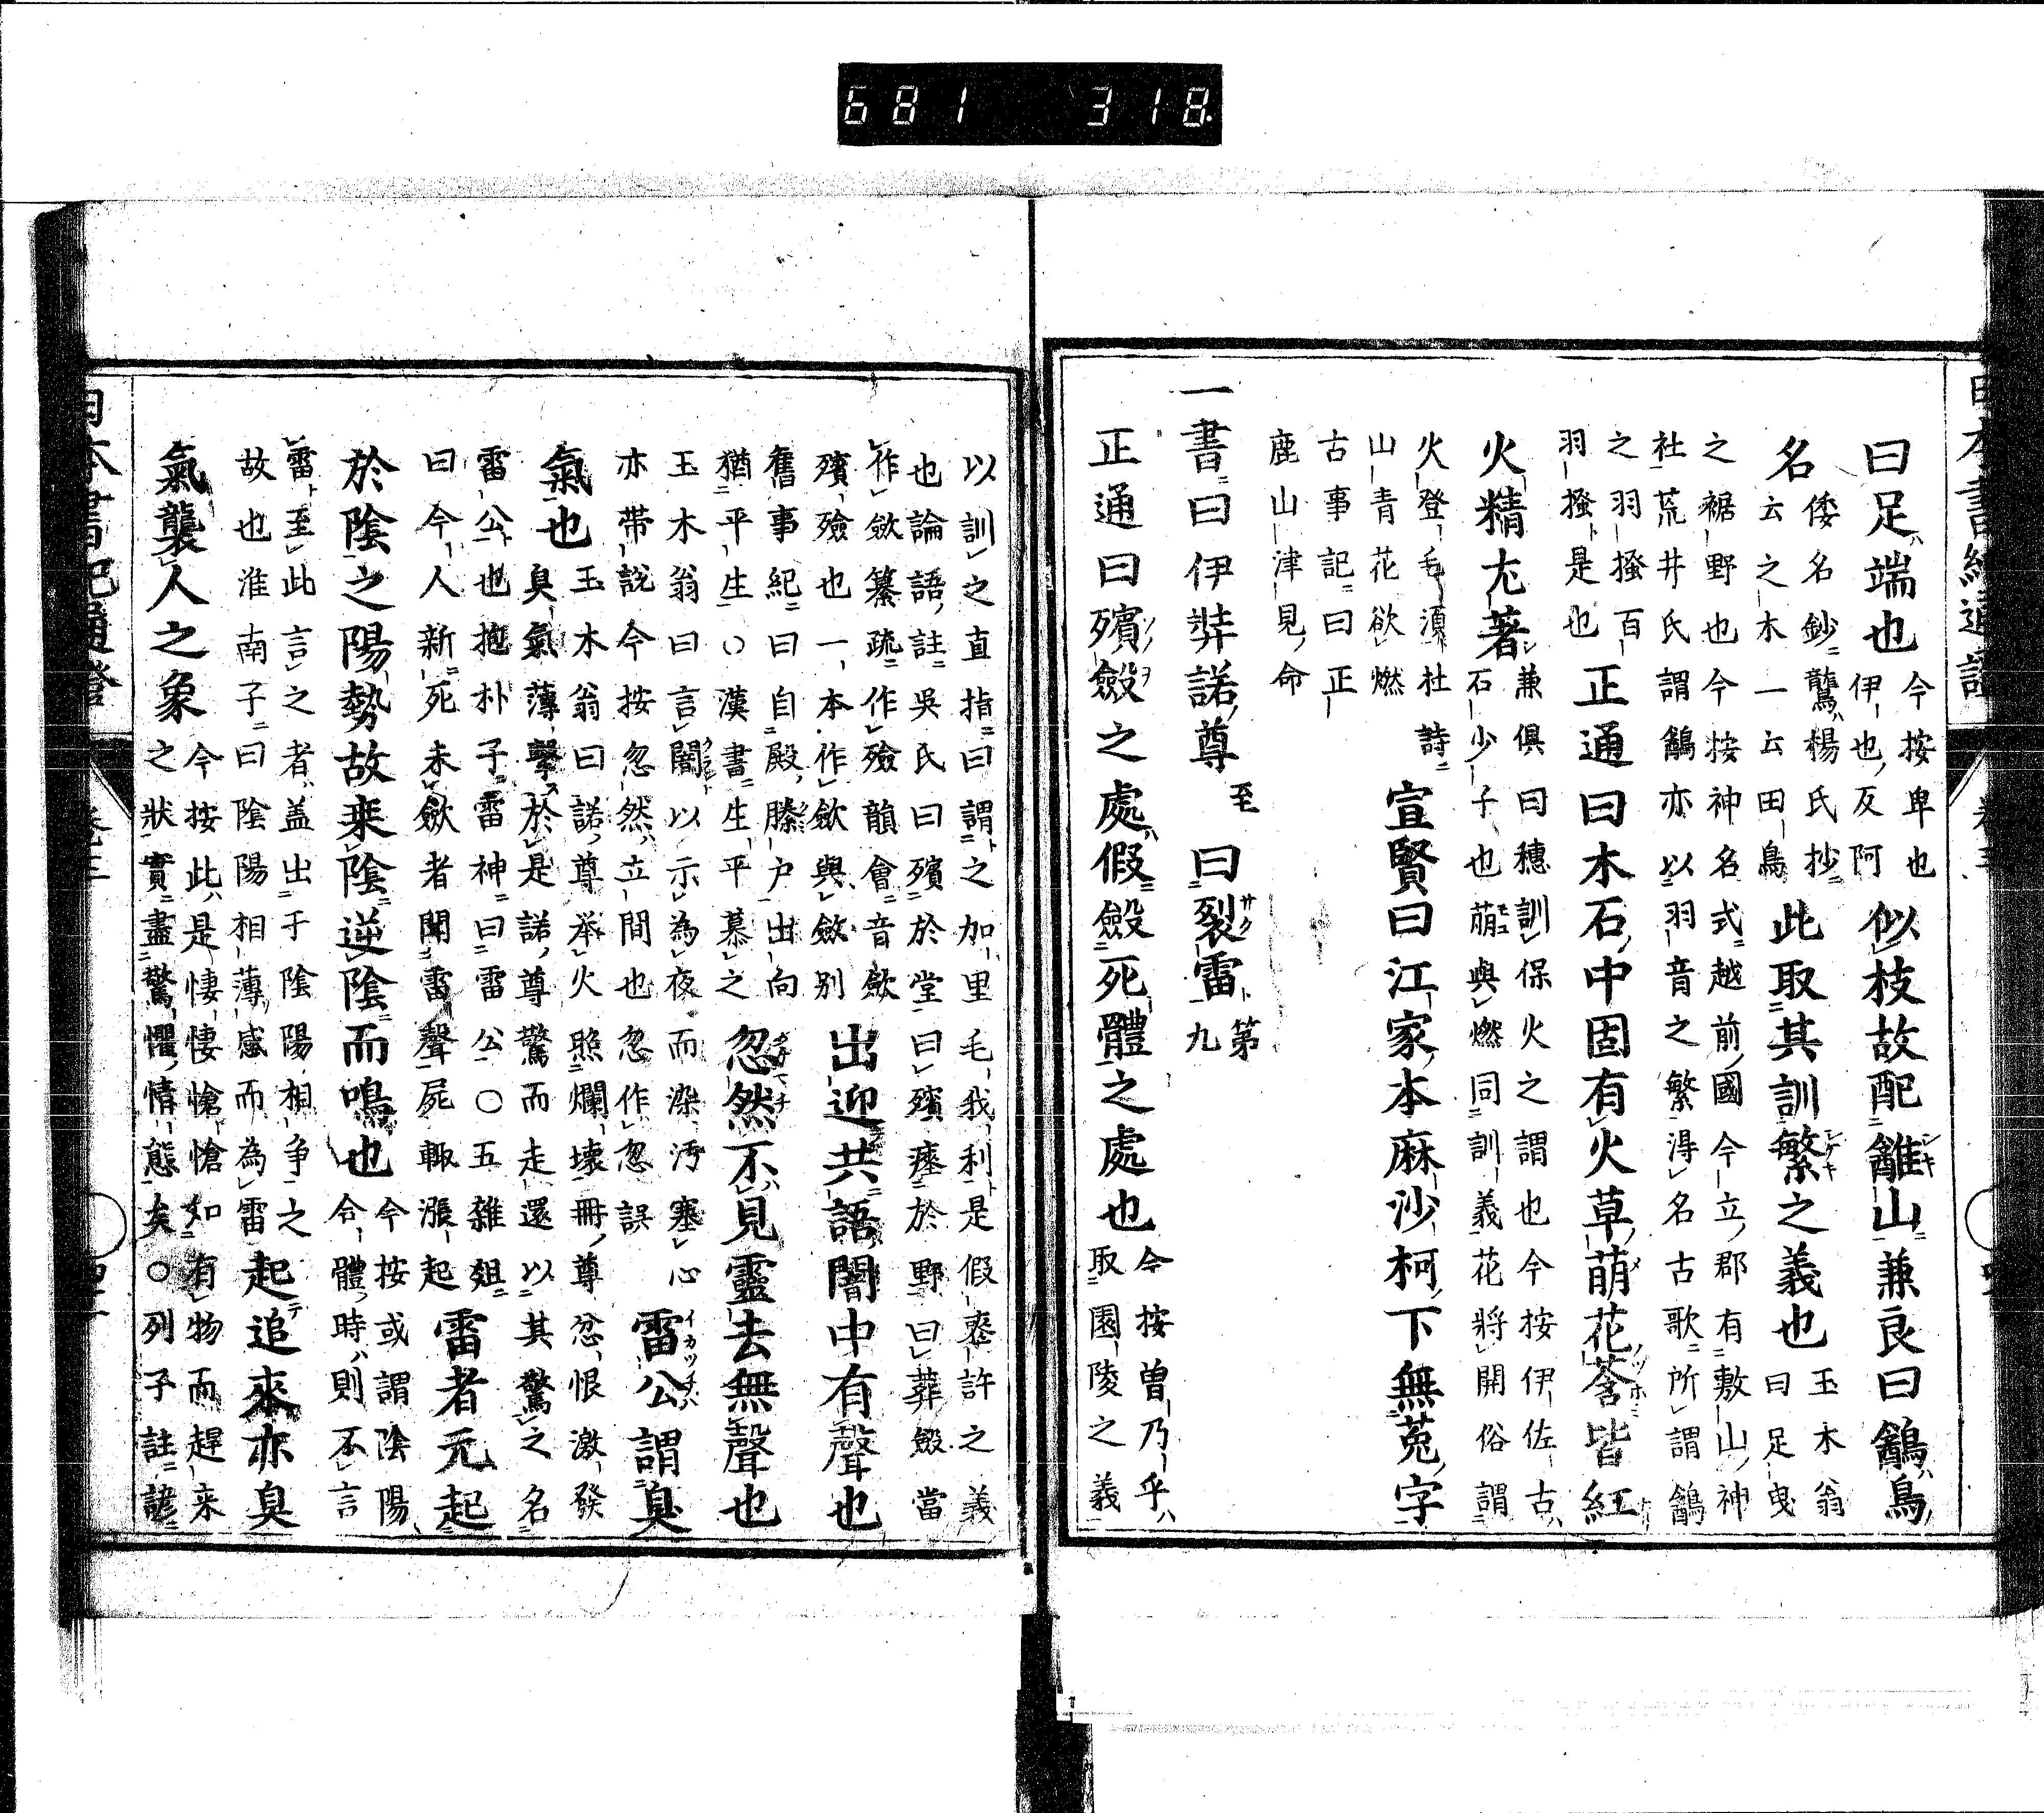 681 318
曰足端也今按卑也伊也反阿似枝故配離山兼良曰鶺鳥
名倭名鈔鶩楊氏抄云之木一云田鳥此取其訓繁之義也玉木翁曰足曳
之裾野也今按神名式越前國今立郡有敷山神社荒井氏謂鶺亦以羽音之繁得名古歌所謂鶺
之羽搔百羽搔是也正通曰木石中固有火草萌花荅皆紅
火精尤著兼俱曰穗訓保火之謂也今按伊佐古石少子也萠與燃同訓義花將開俗謂
火登毛須杜詩山青花欲燃宣賢曰江家本麻沙柯下無菟字
古事記曰正鹿山津見命
一書曰伊弉諾尊至曰裂雷第九
正通曰殯斂之處假斂死體之處也今按曾乃乎取園陵之義
以訓之直指曰謂之加里毛我利是假喪許之義
也論語註吳氏曰殯於堂曰殯瘞於野曰葬斂當
作歛纂疏作殮龍會音歛
殯殮也一本作歛與斂別出迎共語闇中有聲也
舊事紀曰自殿縢户出向
猶平生○漢書生平慕之忽然不見靈去無聲也
玉木翁曰言闇以示為夜而染汚塞心
亦帶説今按忽然立間也忽作忽誤雷公謂臭
氣也玉木翁曰諾尊举火照爛壞冊尊忿恨激發臭氣薄擊於是諾尊驚而走還以其驚之名
雷公也抱朴子雷神曰雷公○五雜爼
曰今人新死未歛者聞雷聲屍輙漲起雷者元起
於陰之陽勢故乗陰逆陰而鳴也今按或謂陰陽合體時則不言
雷至此言之者盖出于陰陽相争之
故也淮南子曰陰陽相薄感而為雷起追來亦臭
氣襲人之象今按此是悽悽愴愴如有物而趕来之狀實盡驚懼情態矣○列子註諺